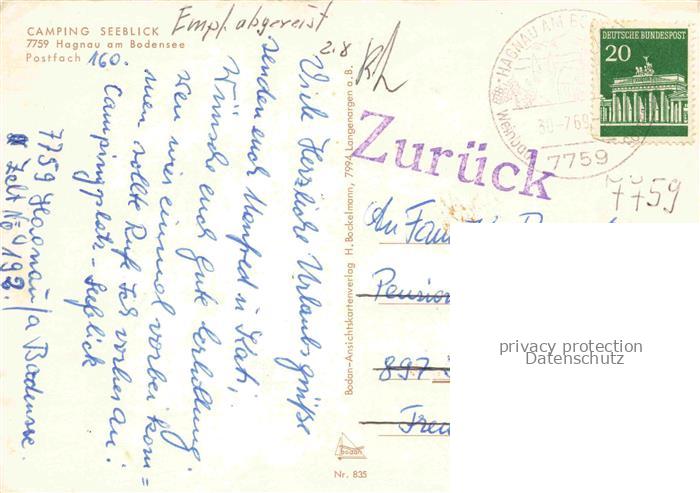 CAMPING SEEBLICK
7759 Hagnau am Bodensee
Postfach 160.
Empf. abgereist
2.8
Viele Herzliche Urlaubsgrüße
senden euch Manfred u. Kati,
Wünsche euch gute Erholung
wen wir einmal vorbei kom=
men sollte Rufe Ich vorher an.
Campingplatz-Seeblick
7759 Hagnau/a Bodensee.
Zelt No 192./
Bodan-Ansichtskartenverlag H. Bockelmann, 7994 Langenargen a. B.
bodan
Nr. 835
Zurück
HAGNAU AM BO
30.-7.69
7759
DEUTSCHE BUNDESPOST
20
7759
An Fam
Pension
897
privacy protection
Datenschutz